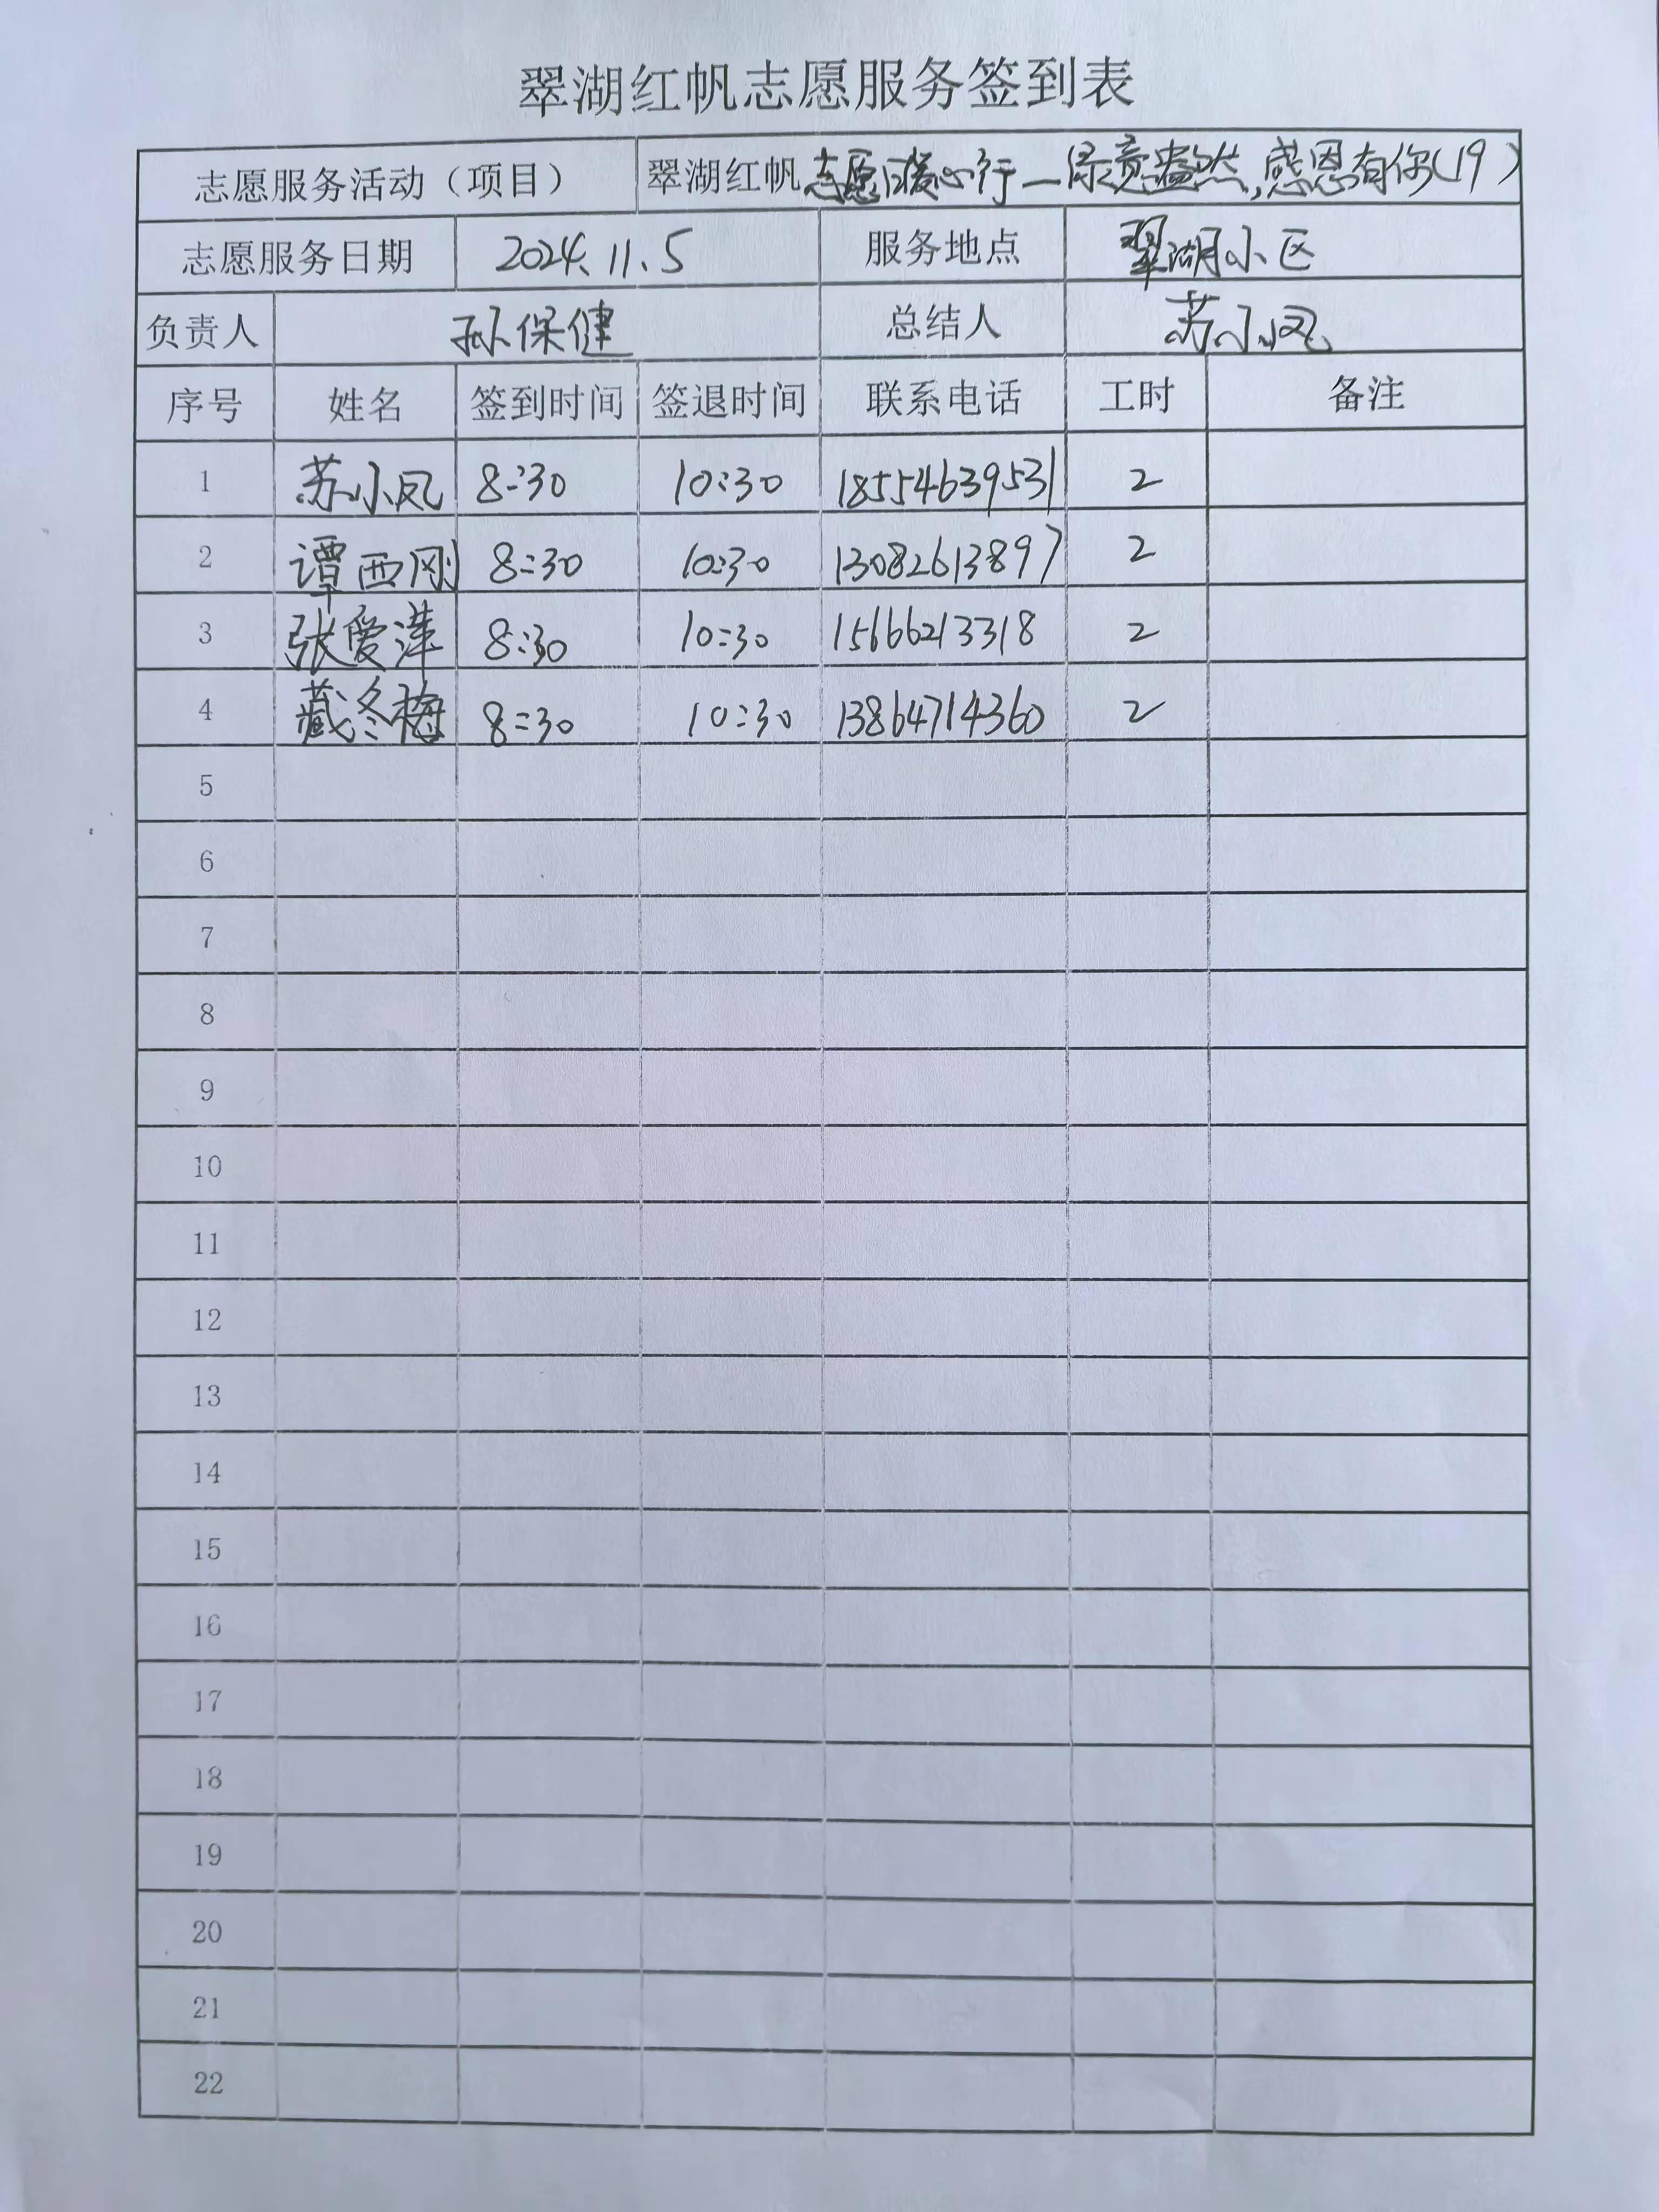 翠湖红帆志愿服务签到表
志愿服务活动（项目） 翠湖红帆志愿暖心行—绿意盎然,感恩有你(19)
志愿服务日期 2024.11.5 服务地点 翠湖小区
负责人 孙保健 总结人 苏小凤
序号 姓名 签到时间 签退时间 联系电话 工时 备注
1 苏小凤 8:30 10:30 18554639531 2
2 谭西刚 8:30 10:30 13082613897 2
3 张爱萍 8:30 10:30 15666213318 2
4 藏冬梅 8:30 10:30 13864714360 2
5
6
7
8
9
10
11
12
13
14
15
16
17
18
19
20
21
22